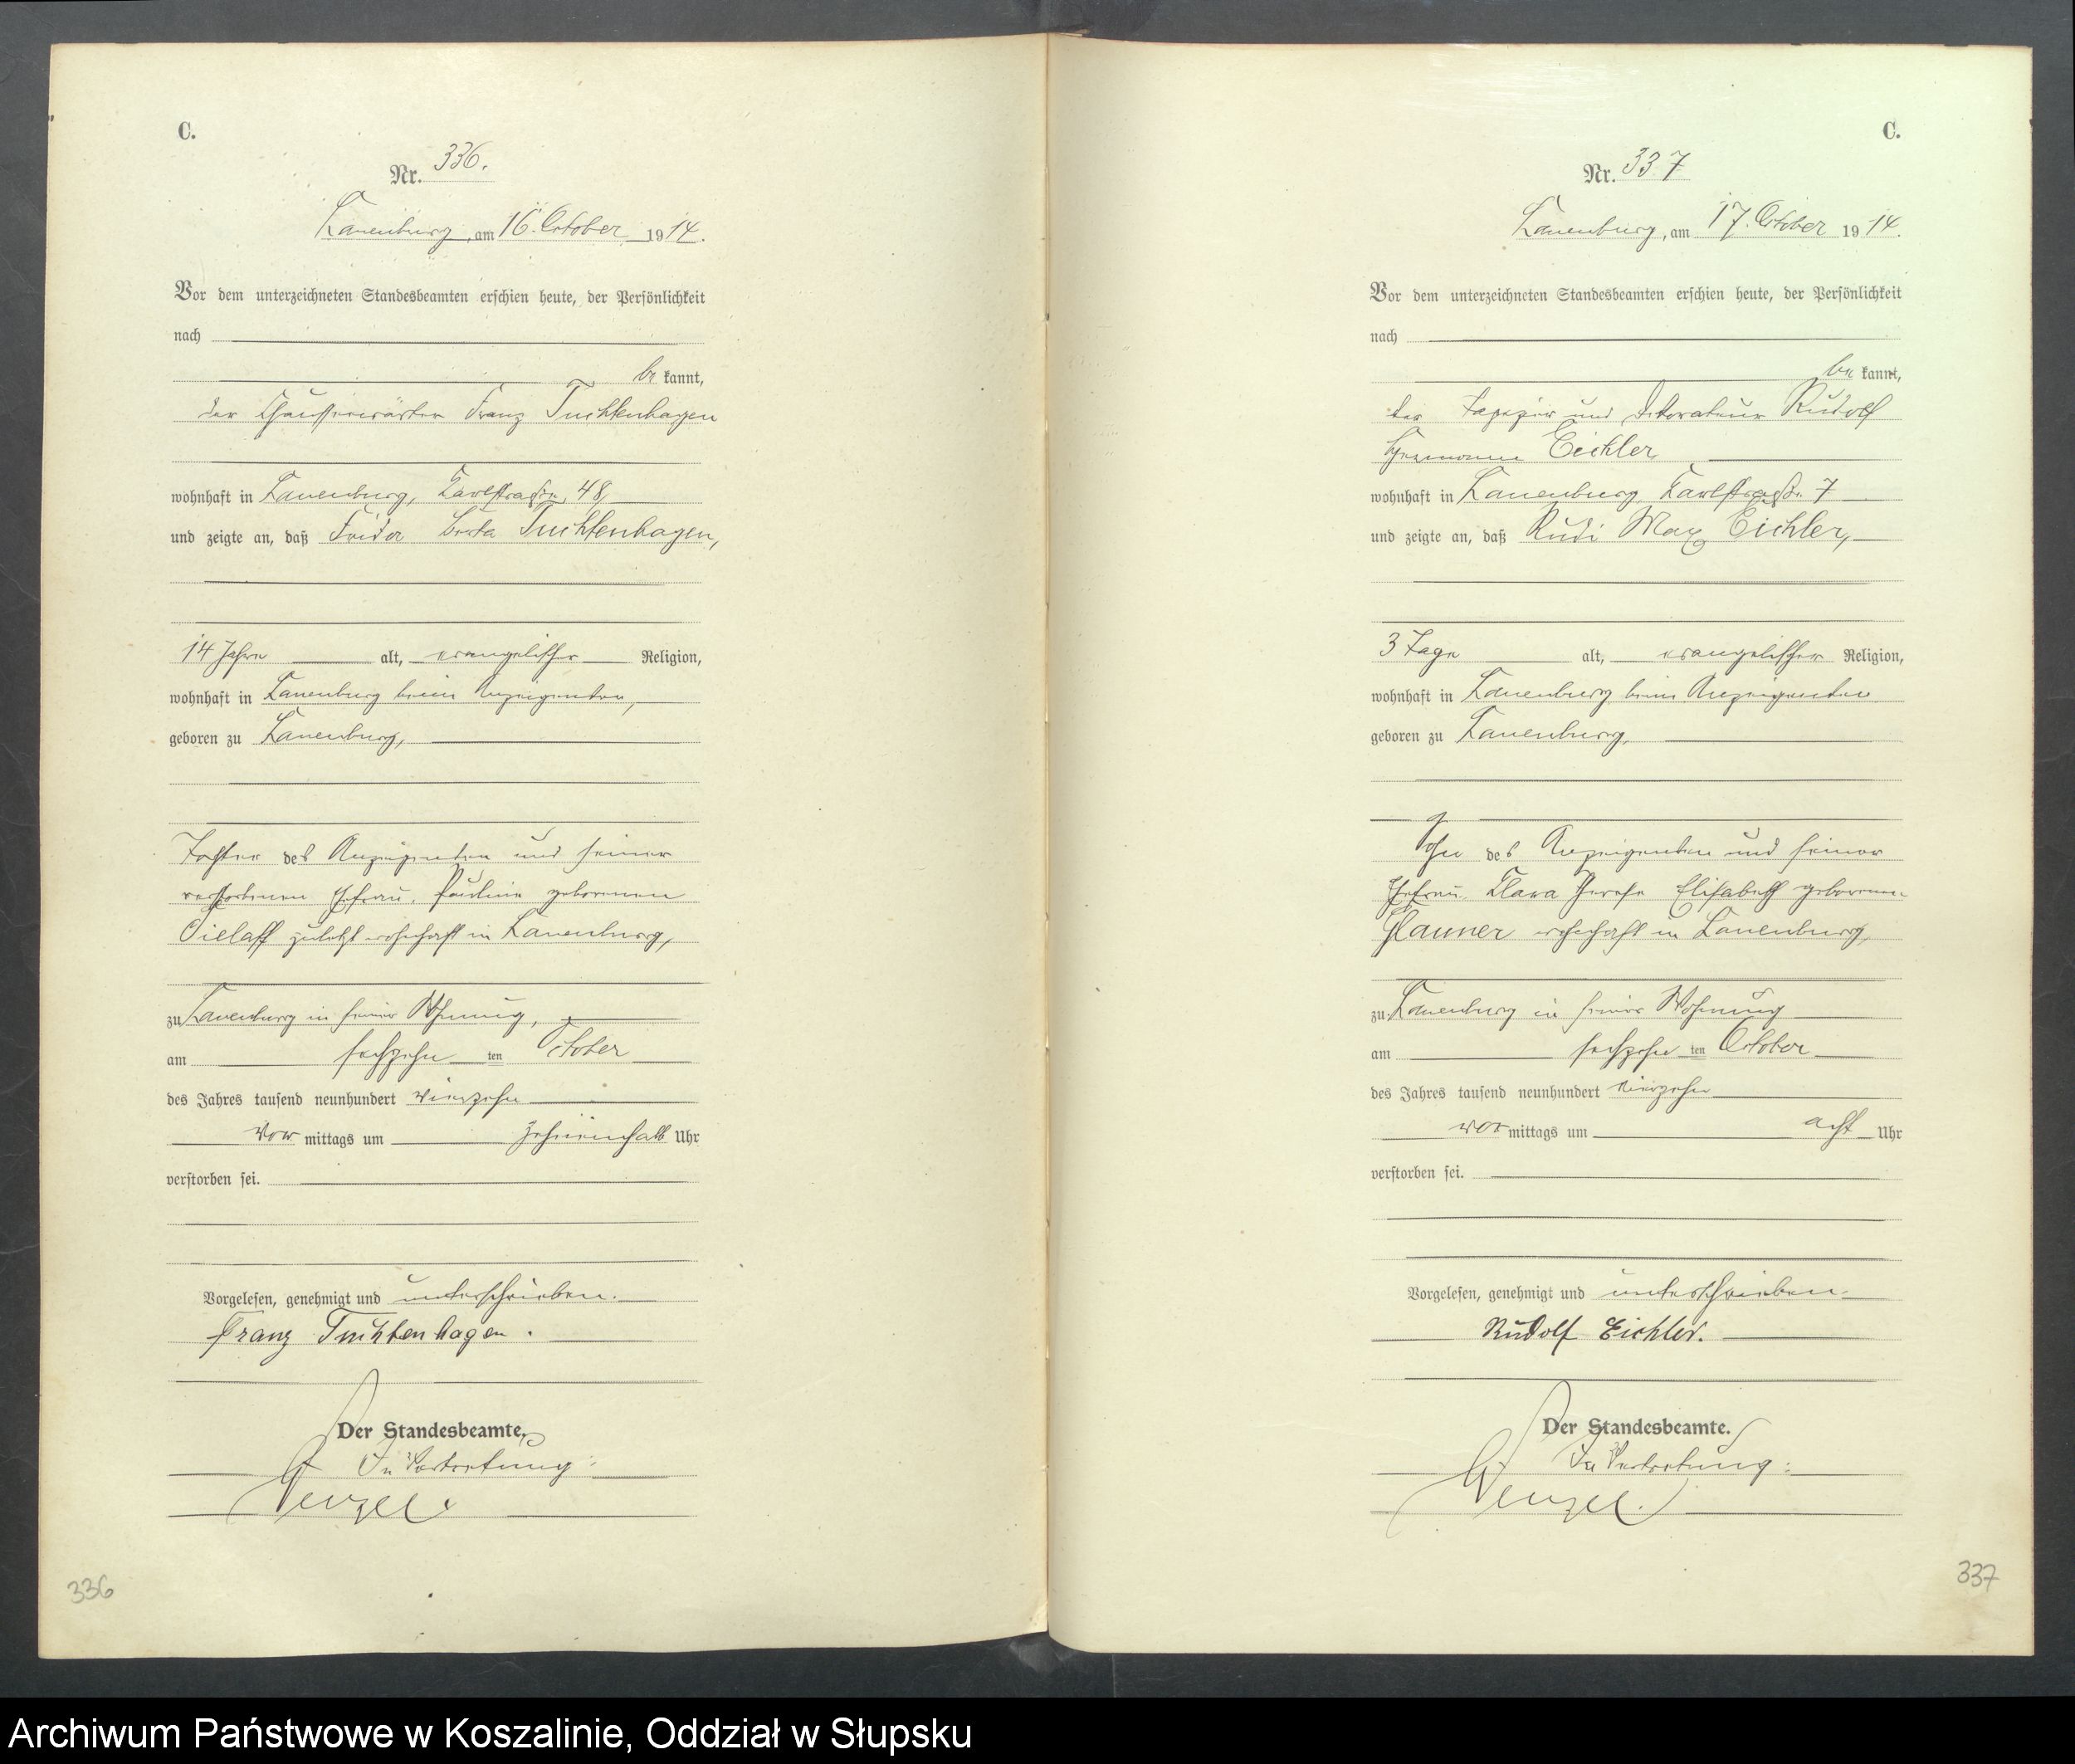 C.
Nr. 336.
Lauenburg, am 16. October 1914.
Vor dem unterzeichneten Standesbeamten erschien heute, der Persönlichkeit
nach
be kannt,
der Chausseewärter Franz Tuchtenhagen
wohnhaft in Lauenburg, Karlstraße 48,
und zeigte an, daß Frida Berta Tuchtenhagen,
14 Jahre alt, evangelischer Religion,
wohnhaft in Lauenburg beim Anzeigenden,
geboren zu Lauenburg,
Tochter des Anzeigenden und seiner
verstorbenen Ehefrau, Pauline geborenen
zuletzt wohnhaft in Lauenburg,
zu Lauenburg in seiner Wohnung,
am sechzehn ten October
des Jahres tausend neunhundert vierzehn
Vor mittags um Uhr
verstorben sei.
Vorgelesen, genehmigt und unterschrieben.
Franz Tuchtenhagen.
Der Standesbeamte.
In Vertretung:
Wenzel.
336
C.
Nr. 337
Lauenburg, am 17. October 1914.
Vor dem unterzeichneten Standesbeamten erschien heute, der Persönlichkeit
nach
be kannt,
der Tapezier und Dekorateur Rudolf
Hermann Eichler
wohnhaft in Lauenburg, Karlstraße 7
und zeigte an, daß Rudi Max Eichler,
3 Tage alt, evangelischer Religion,
wohnhaft in Lauenburg beim Anzeigenden
geboren zu Lauenburg,
Sohn des Anzeigenden und seiner
Ehefrau, Klara Therese Elisabeth geborenen
wohnhaft in Lauenburg,
zu Lauenburg in seiner Wohnung
am sechzehn ten October
des Jahres tausend neunhundert vierzehn
vor mittags um acht Uhr
verstorben sei.
Vorgelesen, genehmigt und unterschrieben.
Rudolf Eichler.
Der Standesbeamte.
In Vertretung:
Wenzel.
337
Archiwum Państwowe w Koszalinie, Oddział w Słupsku